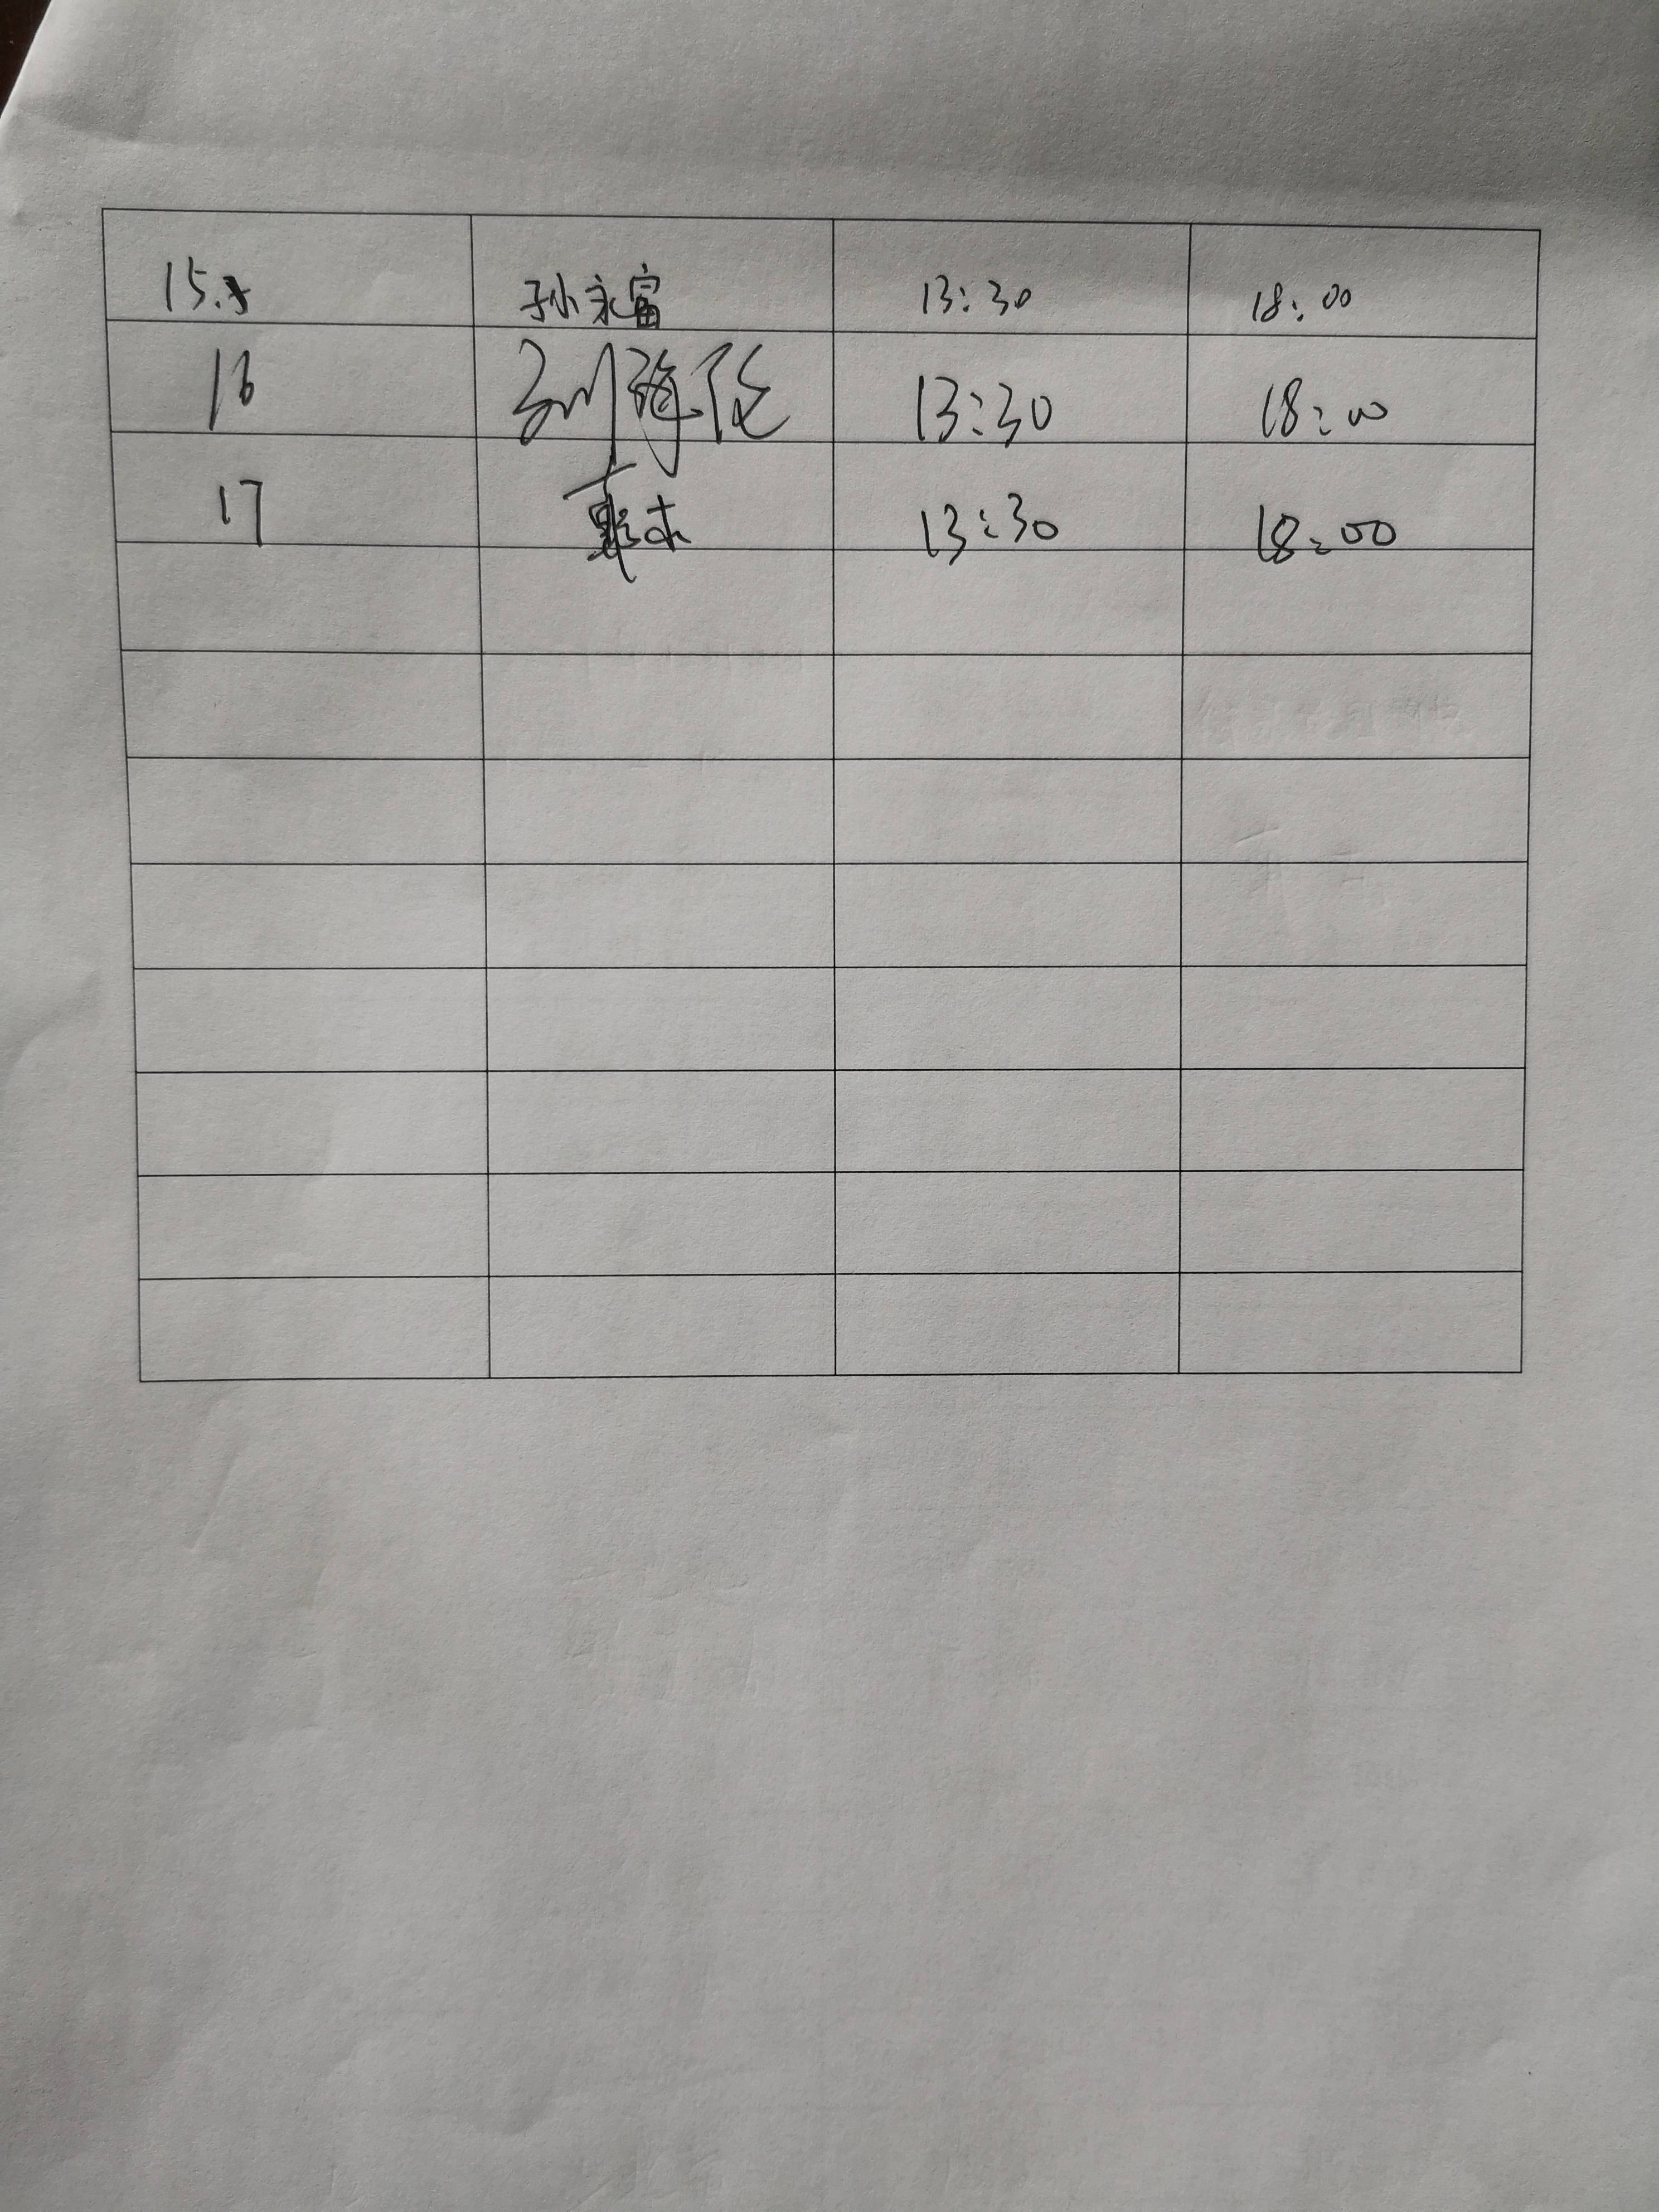 15. 孙永富 13:30 18:00
16 13:30 18:00
17 13:30 18:00